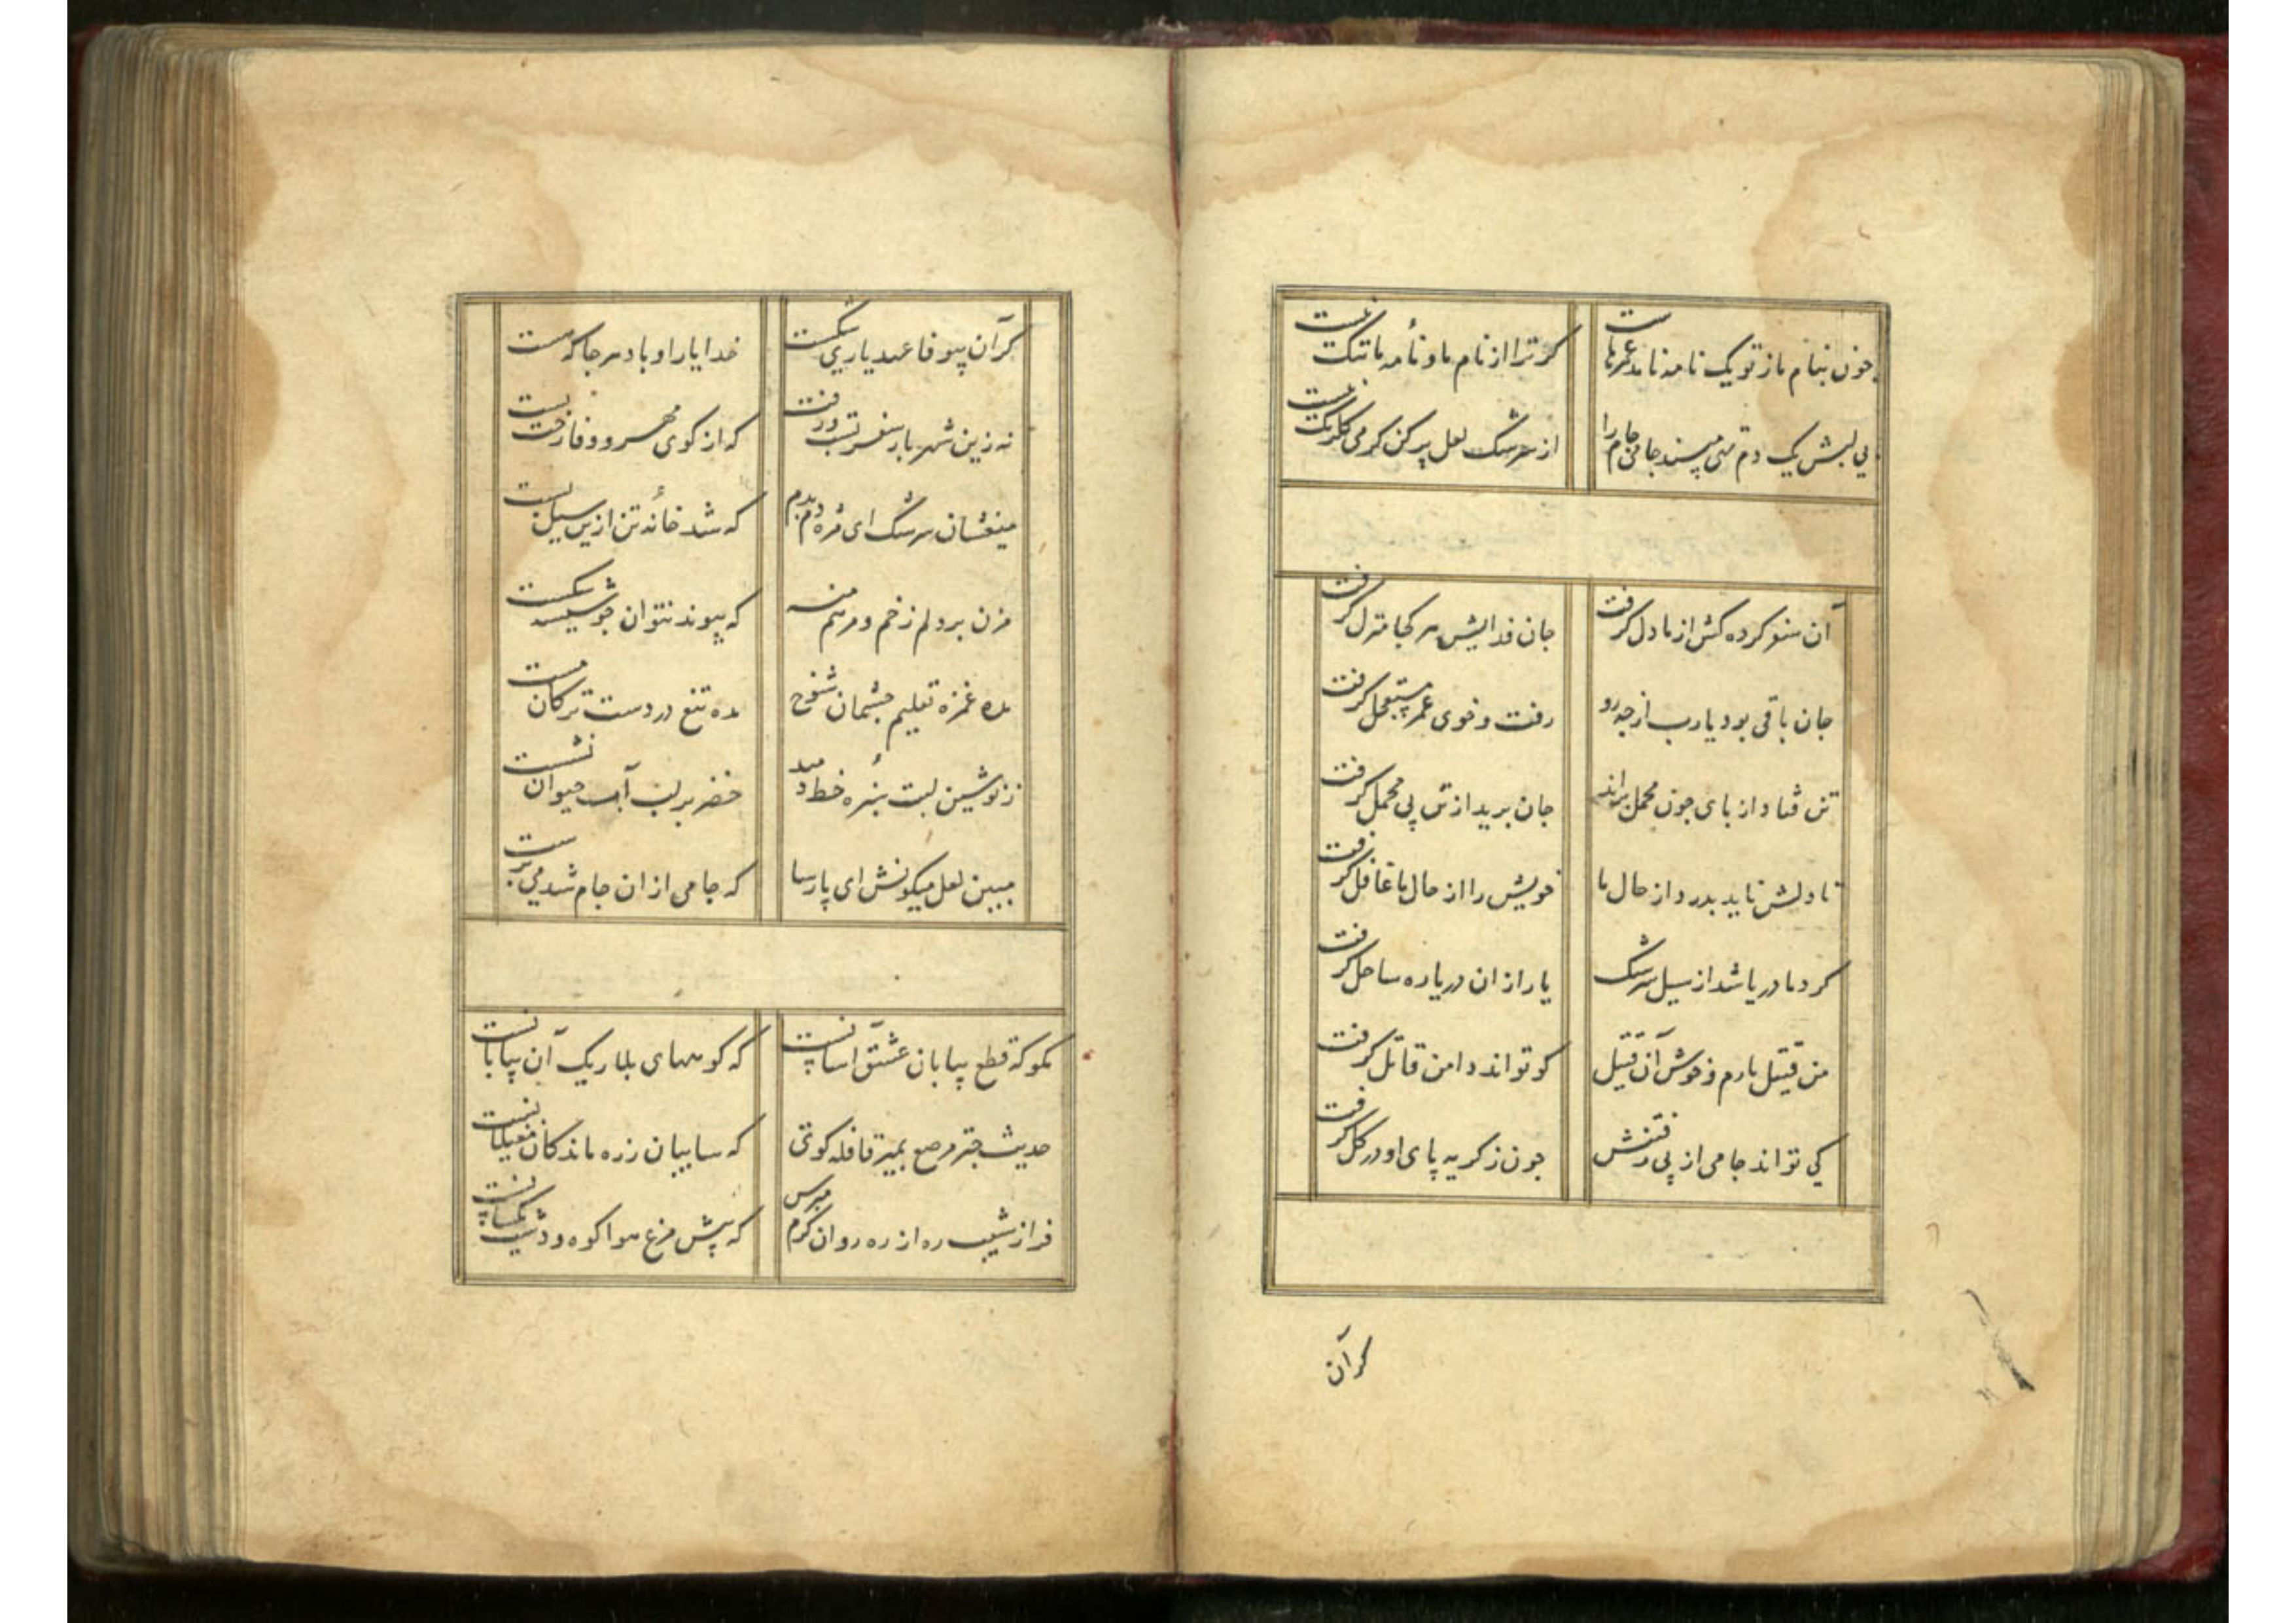 چون بنام ما ز تو یک نامه نامد عمرهاست گر ترا از نام ما و نامهٔ ما ننگ نیست
بی لبش یک دم می پسند جامی جام را از سرشک لعل پر کن گر می گلرنگ نیست
آن سفر کرده کش از ما دل گرفت جان فدایش هر کجا منزل گرفت
جان باقی بود یارب از چه رو رفت و خوی عمر مستعجل گرفت
تن فتاد از پای چون محمل براند جان برید از تن پی محمل گرفت
تا دلش ناید بدرد از حال ما خویش را از حال ما غافل گرفت
گرد ما دریا شد از سیل سرشک یار از ان دریا ره ساحل گرفت
من قتیل یارم و خوش آن قتیل کو تواند دامن قاتل گرفت
کی تواند جامی از پی رفتنش چون ز گریه پای او در گل گرفت
گر آن
گر آن بیوفا عهد یاری شکست خدا یار او باد هر جا که هست
نه زین شهر بار سفر بست و رفت که از کوی مهر و وفا رخت بست
میفشان سرشک ای مژه دم بدم که شد خانهٔ تن ازین سیل پست
مزن بر دلم زخم و مرهم منه که پیوند نتوان چو شیشه شکست
مده غمزه تعلیم چشمان شوخ مده تیغ در دست ترکان مست
ز نوشین لبت سبزهٔ خط دمید خضر بر لب آب حیوان نشست
مبین لعل میگونش ای پارسا که جامی از ان جام شد می پرست
مگو که قطع بیابان عشق آسانست که کوههای بلا ریک آن بیابانست
حدیث چتر مرصع بمیر قافله گوی که سایبان ز ره ماندگان مغیلانست
فراز شیب ره از ره روان گرم مپرس که پیش مرغ هوا کوه و دشت یکسانست